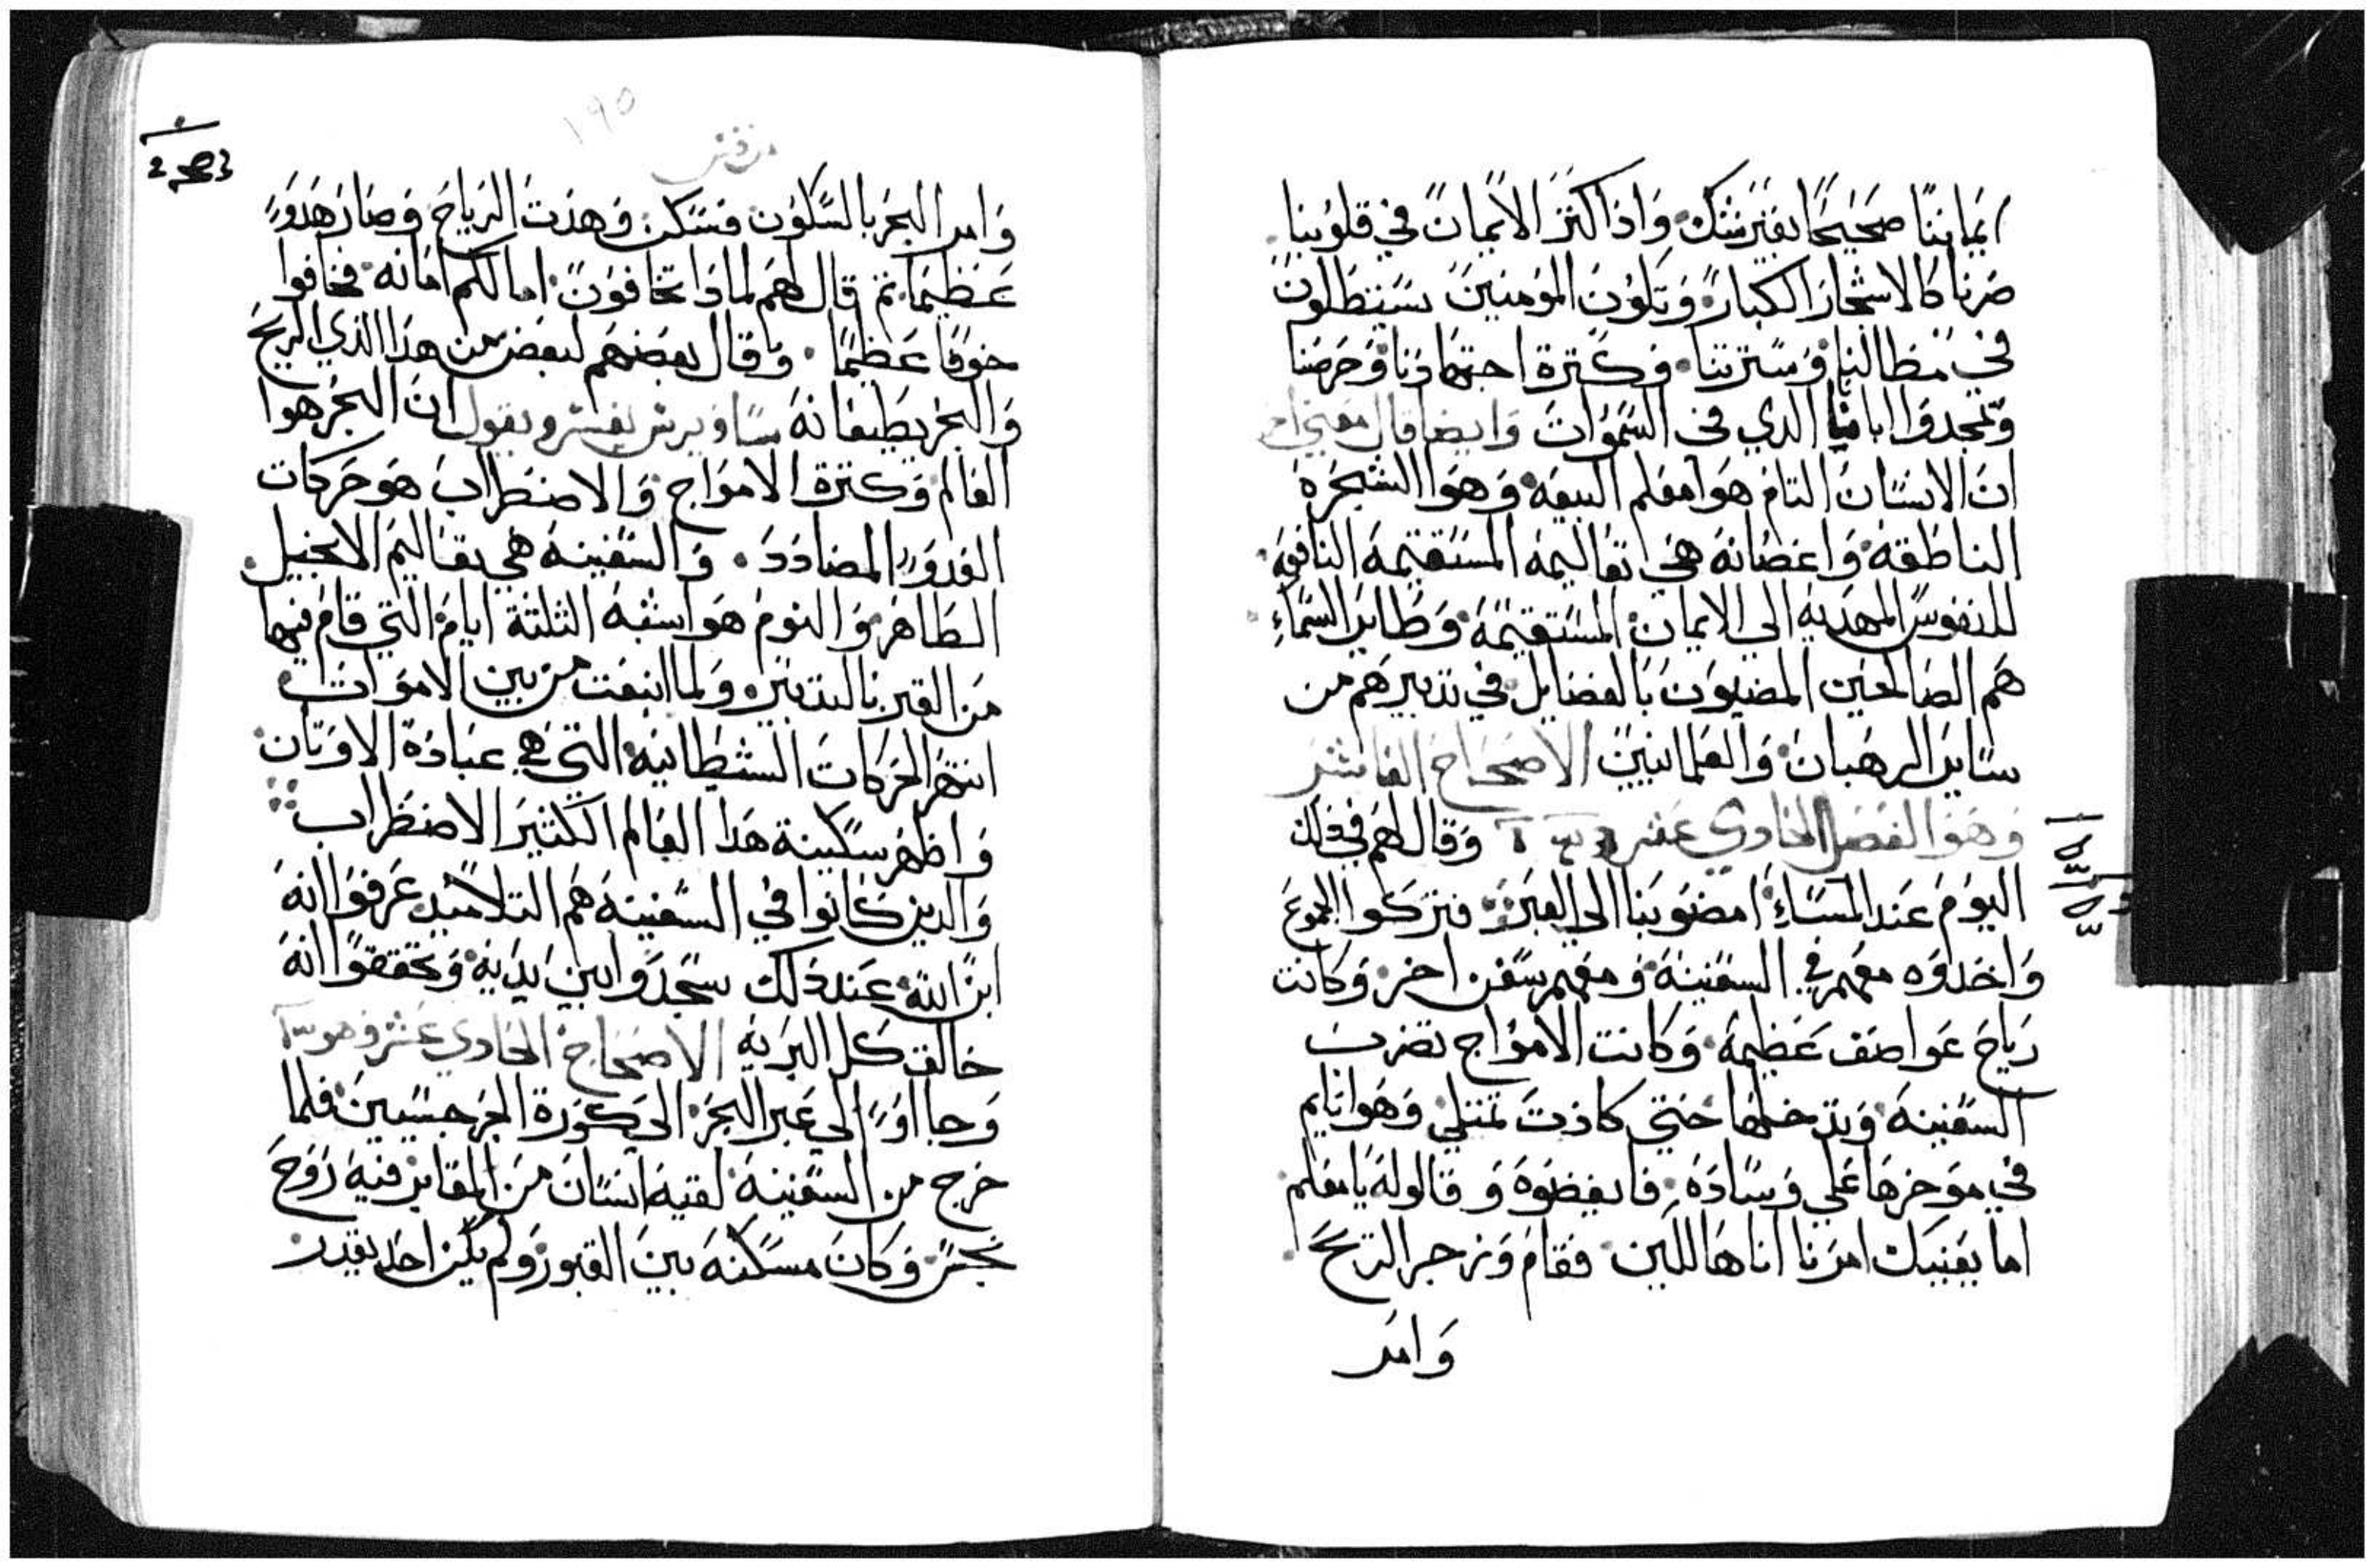 ايماننا صحيحًا بغير شك. واذا كثر الايمان في قلوبنا
صرنا كالاشجار الكبار. وتكون المومنين يستظلون
في مظالنا وسترتنا. وكثرة اجتهادنا وحرصنا
وتمجدوا ابانا الذي في السموات وايضا قال
ان الانسان التام هو معلم البيعه. وهو الشجره
الناطقه. واغصانه هي تعاليمه المستقيمه النافعه.
للنفوس المهديه الي الايمان المستقيمه. وطاير السماء
هم الصالحين المضيون بالفضايل في تدبيرهم من
ساير الرهبان. والعلمانيين الاصحاح العاشر
وهو الفصل الحادي عشر وقال لهم في ذلك
اليوم عند المساء امضوا بنا الي العبر. فتركوا الجموع
واخدوه معهم في السفينه. ومعهم سفن اخر. وكانت
رياح عواصف عظيمه. وكانت الامواج تضرب
السفينه. وتدخلها حتي كادت تمتلي وهو نايم
في موخرها علي وساده. فايقضوه و قالوله يا معلم
اما يعنيك امرنا اننا هالكين. فقام وزجر الريح.
وامر
١٩٥
وامر البحر بالسكون فسكن. وهدت الرياح. وصار هدوًا
عظيمًا. ثم قال لهم لمادا تخافون. اما لكم امانه. فخافوا
خوفًا عظيمًا. وقال بعضهم لبعض من هدا الذي الريح
والبحر يطيعانه ويقول ان البحر هوا
العالم. وكثرة الامواج والاضطراب هو حركات
العدوا المضادد. والسفينه هي تعاليم الانجيل.
الطاهر. والنوم هو اشبه الثلثة ايام. التي قام فيها
من القبر بالتدبير. ولما انبعت من بين الاموات.
انتهر الحركات الشيطانيه. التي هي عبادة الاوتان.
واظهر سكينة هدا العالم الكثير الاضطراب.
والدين كانوا في السفينه هم التلاميد. عرفوا انه
ابن الله. عند ذلك سجدوا بين يديه. وتحققوا انه
خالق كل البريه الاصحاح الحادي عشر وهو
وجااوا الي عبر البحر. الي كورة الجرجسيين. فلما
خرج من السفينه. لقيه انسان من المقابر فيه روح
نجس. وكان مسكنه بين القبور. ولم يكن احد يقدر